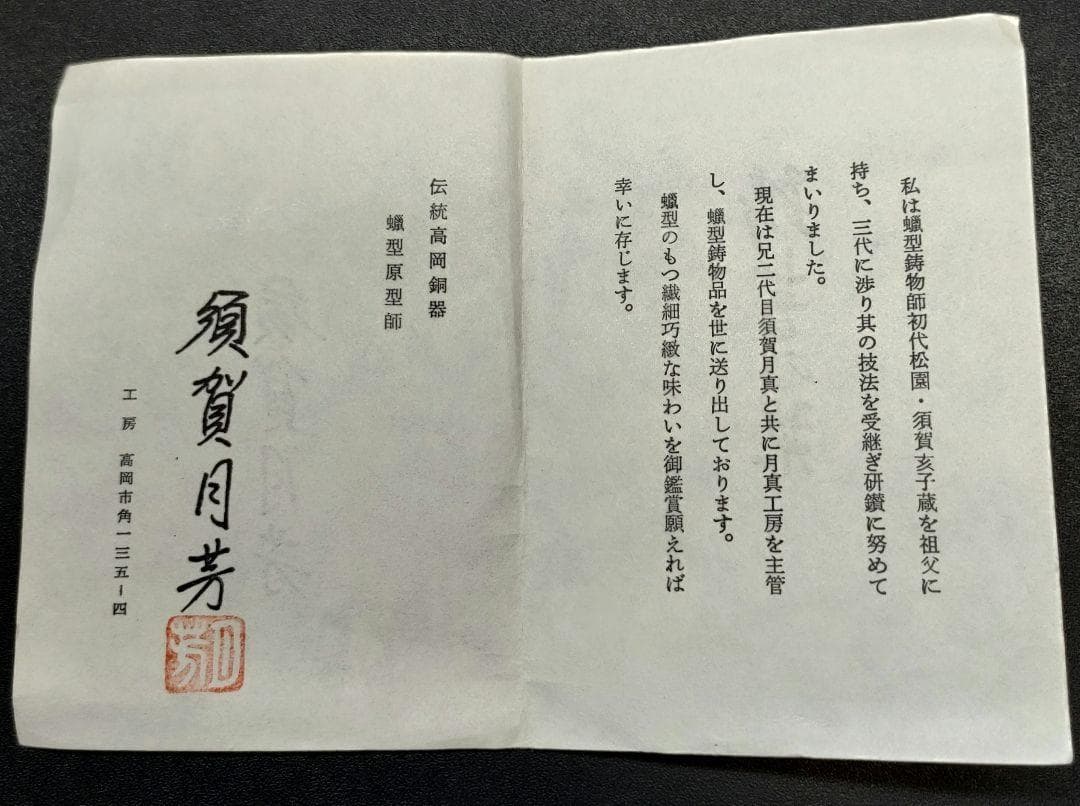 私は蠟型鋳物師初代松園・須賀亥子蔵を祖父に
持ち、三代に渉り其の技法を受継ぎ研鑽に努めて
まいりました。
現在は兄二代目須賀月真と共に月真工房を主管
し、蠟型鋳物品を世に送り出しております。
蠟型のもつ繊細巧緻な味わいを御鑑賞願えれば
幸いに存じます。
伝統高岡銅器
蠟型原型師
須賀月芳
月芳
工房 高岡市角一三五-四